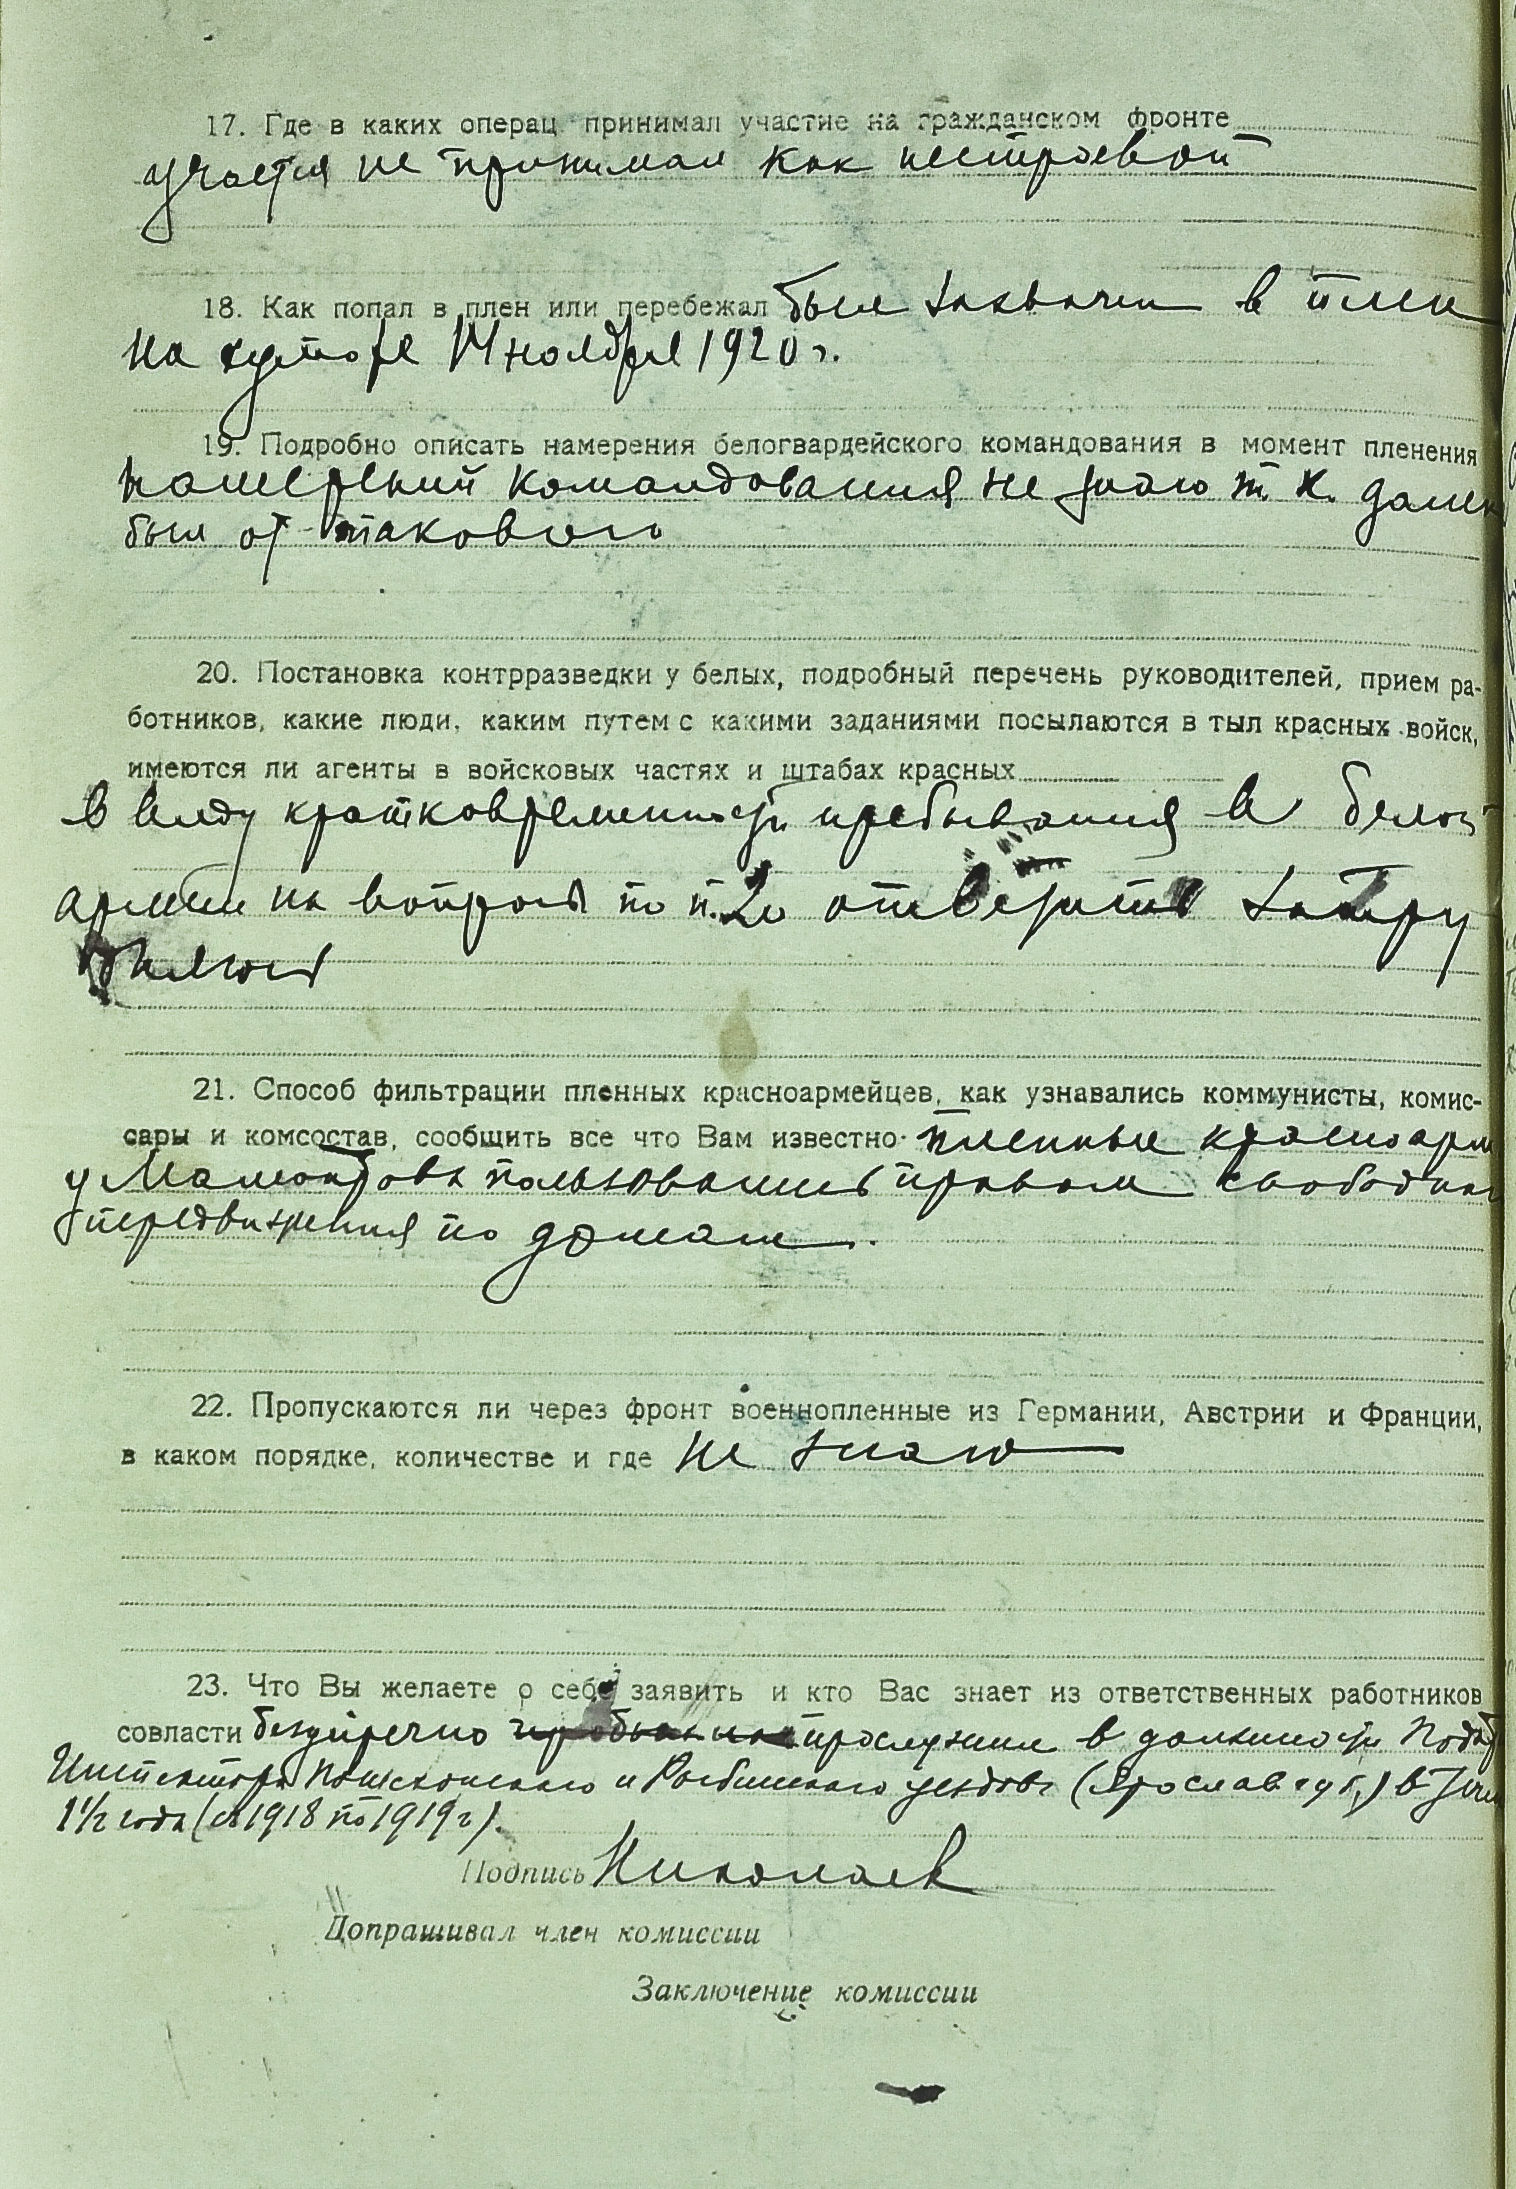 17. Где в каких операц. принимал участие на гражданском фронте
участия не принимал как нестроевой
18. Как попал в плен или перебежал был захвачен в плен
на хуторе 14 ноября 1920 г.
19. Подробно описать намерения белогвардейского командования в момент пленения
намерений командования не знаю т. к. далек
был от такового
20. Постановка контрразведки у белых, подробный перечень руководителей, прием ра-
ботников, какие люди, каким путем с какими заданиями посылаются в тыл красных войск,
имеются ли агенты в войсковых частях и штабах красных
в виду кратковременности пребывания в белой
армии на вопросы по п. 20 ответить затру
дняюсь
21. Способ фильтрации пленных красноармейцев, как узнавались коммунисты, комис-
сары и комсостав, сообщить все что Вам известно пленные красноарм
у Мамонтова пользовались правом свободного
передвижения по домам.
22. Пропускаются ли через фронт военнопленные из Германии, Австрии и Франции,
в каком порядке, количестве и где не знаю
23. Что Вы желаете о себе заявить и кто Вас знает из ответственных работников
совласти безупречно прослужил в должности Податн
Инспектора Пошехонского и Рыбинского уездов (Ярослав. губ.) в течен
1 1/2 года (с 1918 по 1919 г).
Подпись Николаев
Допрашивал член комиссии
Заключение комиссии